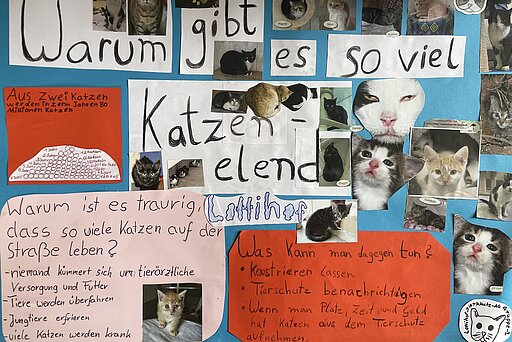 Warum gibt
es so viel
Katzen-
elend
Aus zwei Katzen
werden in zehn Jahren 80
Millionen Katzen
Lottihof
Warum ist es traurig,
dass so viele Katzen auf der
Straße leben?
-niemand kümmert sich um tierärztliche
Versorgung und Futter
-Tiere werden überfahren
-Jungtiere erfrieren
-viele Katzen werden krank
Was kann man dagegen tun?
• Kastrieren lassen
• Tierschutz benachrichtigen
• Wenn man Platz, Zeit und Geld
hat Katzen aus dem Tierschutz
aufnehmen.